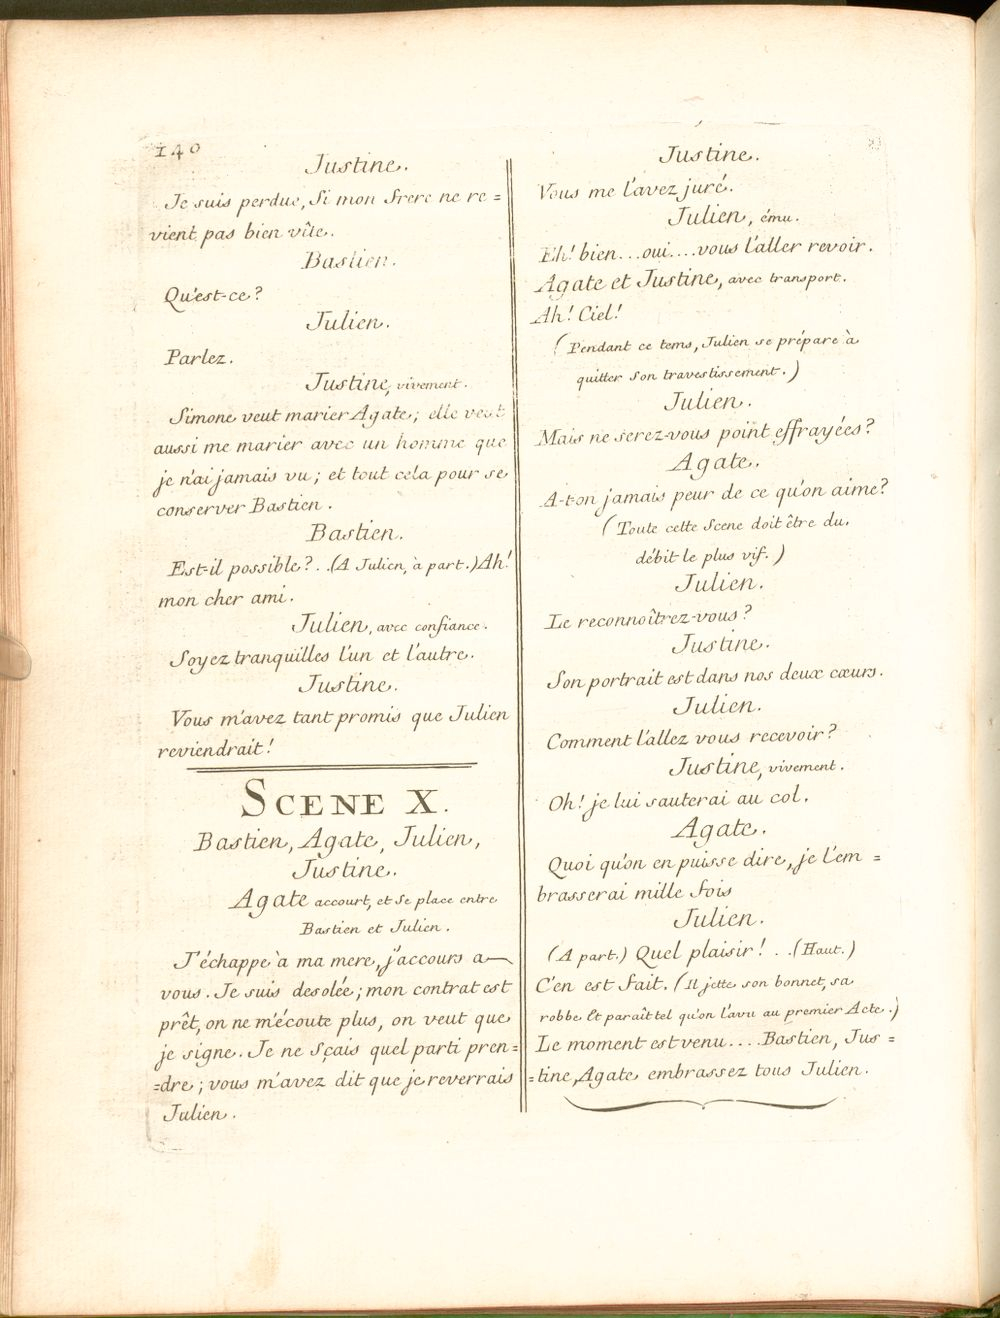 140
Justine.
Je suis perdue, Si mon frere ne re =
vient pas bien vîte.
Bastien.
Qu'est-ce?
Julien.
Parlez.
Justine, vivement.
Simone veut marier Agate; elle veut
aussi me marier avec un homme que
je n'ai jamais vu; et tout cela pour se
conserver Bastien.
Bastien.
Est-il possible?..(A Julien, à part.) Ah!
mon cher ami.
Julien, avec confiance.
Soyez tranquilles l'un et l'autre.
Justine.
Vous m'avez tant promis que Julien
reviendrait!
SCENE X.
Bastien, Agate, Julien,
Justine.
Agate accourt, et se place entre
Bastien et Julien.
J'échappe à ma mere, j'accours a
vous. Je suis desolée; mon contrat est
prêt, on ne m'écoute plus, on veut que
je signe. Je ne Sçais quel parti pren=
=dre; vous m'avez dit que je reverrais
Julien.
Justine.
Vous me l'avez juré.
Julien, ému.
Eh! bien...oui....vous l'aller revoir.
Agate et Justine, avec transport.
Ah! Ciel!
(Pendant ce tems, Julien se prépare à
quitter Son travestissement.)
Julien.
Mais ne serez-vous point effrayées?
Agate.
A-t-on jamais peur de ce qu'on aime?
(Toute cette Scene doit être du
débit le plus vif.)
Julien.
Le reconnoîtrez-vous?
Justine.
Son portrait est dans nos deux cœurs.
Julien.
Comment l'allez vous recevoir?
Justine, vivement.
Oh! je lui sauterai au col.
Agate.
Quoi qu'on en puisse dire, je l'em =
brasserai mille fois
Julien.
(A part.) Quel plaisir! ..(Haut.)
C'en est fait. (Il jette son bonnet, sa
robbe Et paraît tel qu'on l'a vu au premier Acte.)
Le moment est venu....Bastien, Jus =
=tine, Agate embrassez tous Julien.